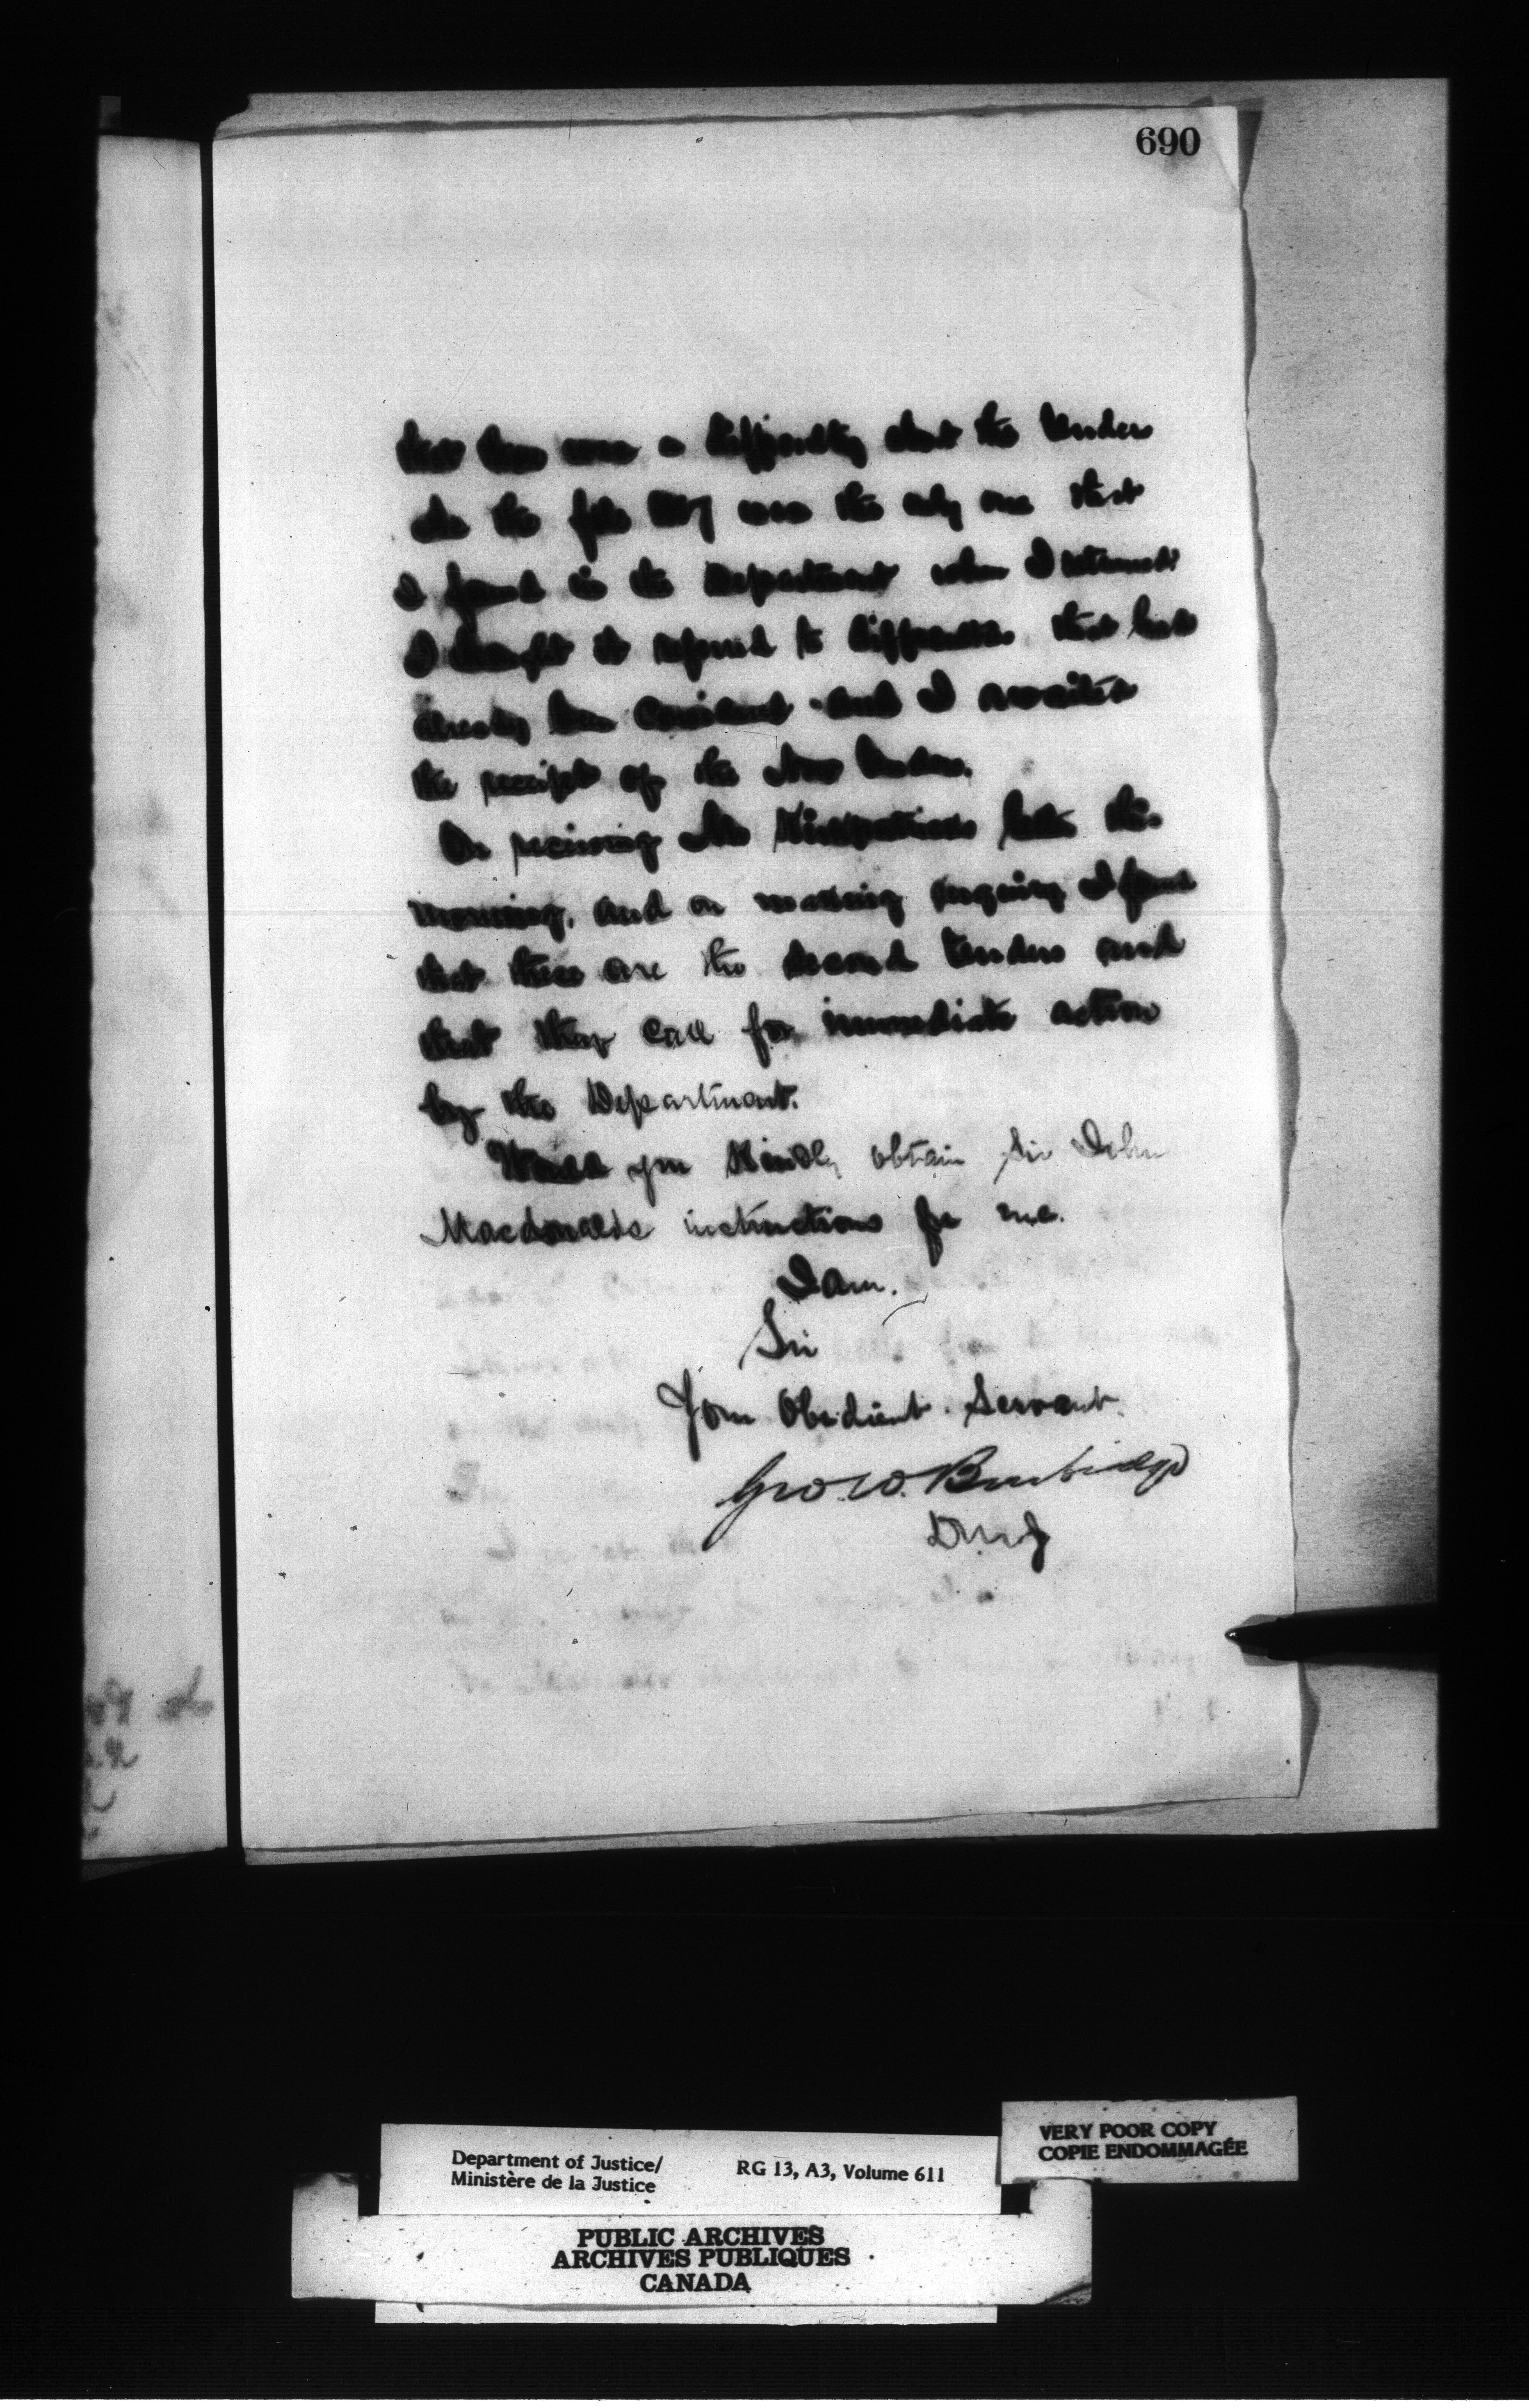 690
that there was a difficulty about the tenders
the only one that
I found in the Department when I returned
I thought it referred to difficulties that had
already been considered and I awaited
the receipt of the new tenders.
On receiving Mr Kirkpatricks letter this
morning, and on making inquiry I found
that these are the second tenders and
that they call for immediate action
by the Department.
Would you kindly obtain Sir John
Macdonalds instructions for me.
I am.
Sir
Your Obedient Servant.
Geo. W. Burbidge
D.M.J
VERY POOR COPY
COPIE ENDOMMAGÉE
Department of Justice/
Ministère de la Justice
RG 13, A3, Volume 611
PUBLIC ARCHIVES
ARCHIVES PUBLIQUES
CANADA